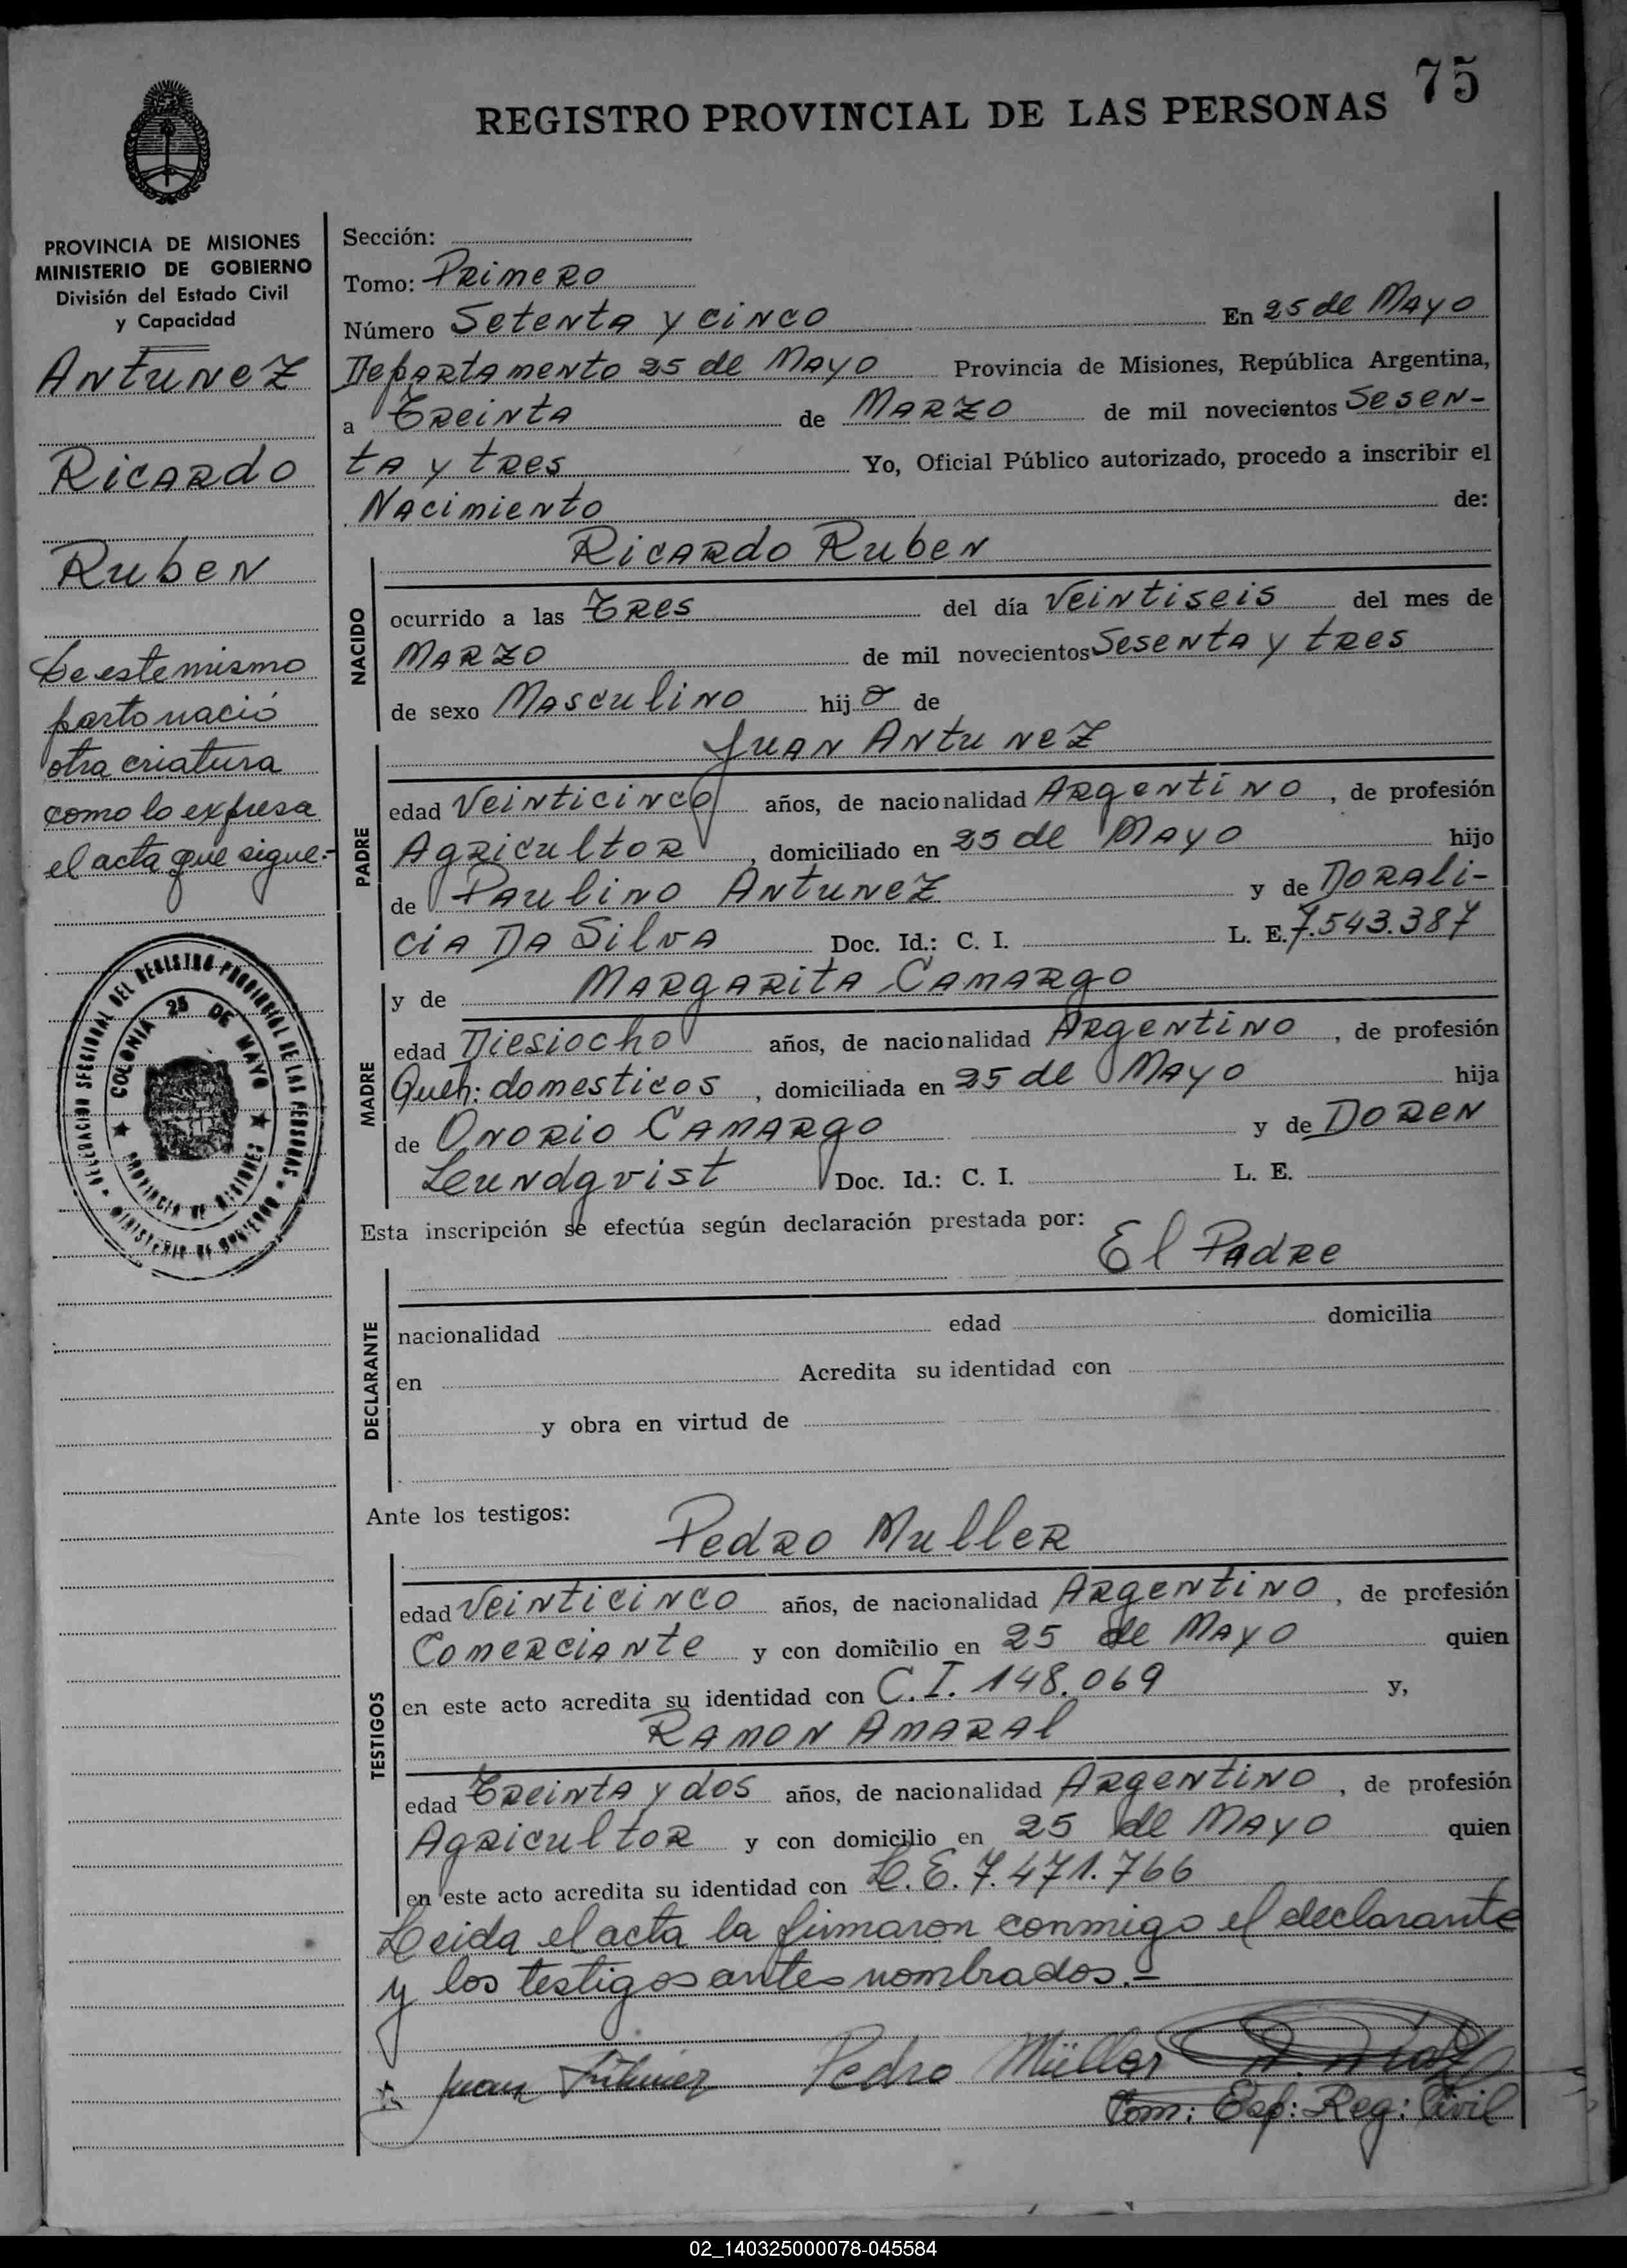 75
REGISTRO PROVINCIAL DE LAS PERSONAS
PROVINCIA DE MISIONES
MINISTERIO DE GOBIERNO
División del Estado Civil
y Capacidad
Antunez
Ricardo
Ruben
De este mismo
parto nació
otra criatura
como lo expresa
el acta que sigue.-
DELEGACION SECCIONAL DEL REGISTRO PROVINCIAL DE LAS PERSONAS
MINISTERIO DE GOBIERNO
COLONIA 25 DE MAYO
PROVINCIA DE MISIONES
Sección:
Tomo: Primero
Número Setenta y cinco En 25 de Mayo
Departamento 25 de Mayo Provincia de Misiones, República Argentina,
a Treinta de Marzo de mil novecientos Sesen-
ta y tres Yo, Oficial Público autorizado, procedo a inscribir el
Nacimiento de:
NACIDO
Ricardo Ruben
ocurrido a las Tres del día Veintiseis del mes de
Marzo de mil novecientos Sesenta y tres
de sexo Masculino hijo de
PADRE
Juan Antunez
edad Veinticinco años, de nacionalidad Argentino, de profesión
Agricultor, domiciliado en 25 de Mayo hijo
de Paulino Antunez y de Dorali-
cia Da Silva Doc. Id.: C. I. L. E. 7.543.387
MADRE
y de Margarita Camargo
edad Diesiocho años, de nacionalidad Argentino, de profesión
Queh: domesticos, domiciliada en 25 de Mayo hija
de Onorio Camargo y de Doren
Leundqvist Doc. Id.: C. I. L. E.
Esta inscripción se efectúa según declaración prestada por:
El Padre
DECLARANTE
nacionalidad edad domicilia
en Acredita su identidad con
y obra en virtud de
Ante los testigos:
TESTIGOS
Pedro Muller
edad Veinticinco años, de nacionalidad Argentino, de profesión
Comerciante y con domicilio en 25 de Mayo quien
en este acto acredita su identidad con C.I. 148.069 y,
Ramon Amaral
edad Treinta y dos años, de nacionalidad Argentino, de profesión
Agricultor y con domicilio en 25 de Mayo quien
en este acto acredita su identidad con L.E. 7.471.766
Leida el acta la firmaron conmigo el declarante
y los testigos antes nombrados.-
Juan Pedro Müller
Com: Esp: Reg: Civil
02_140325000078-045584